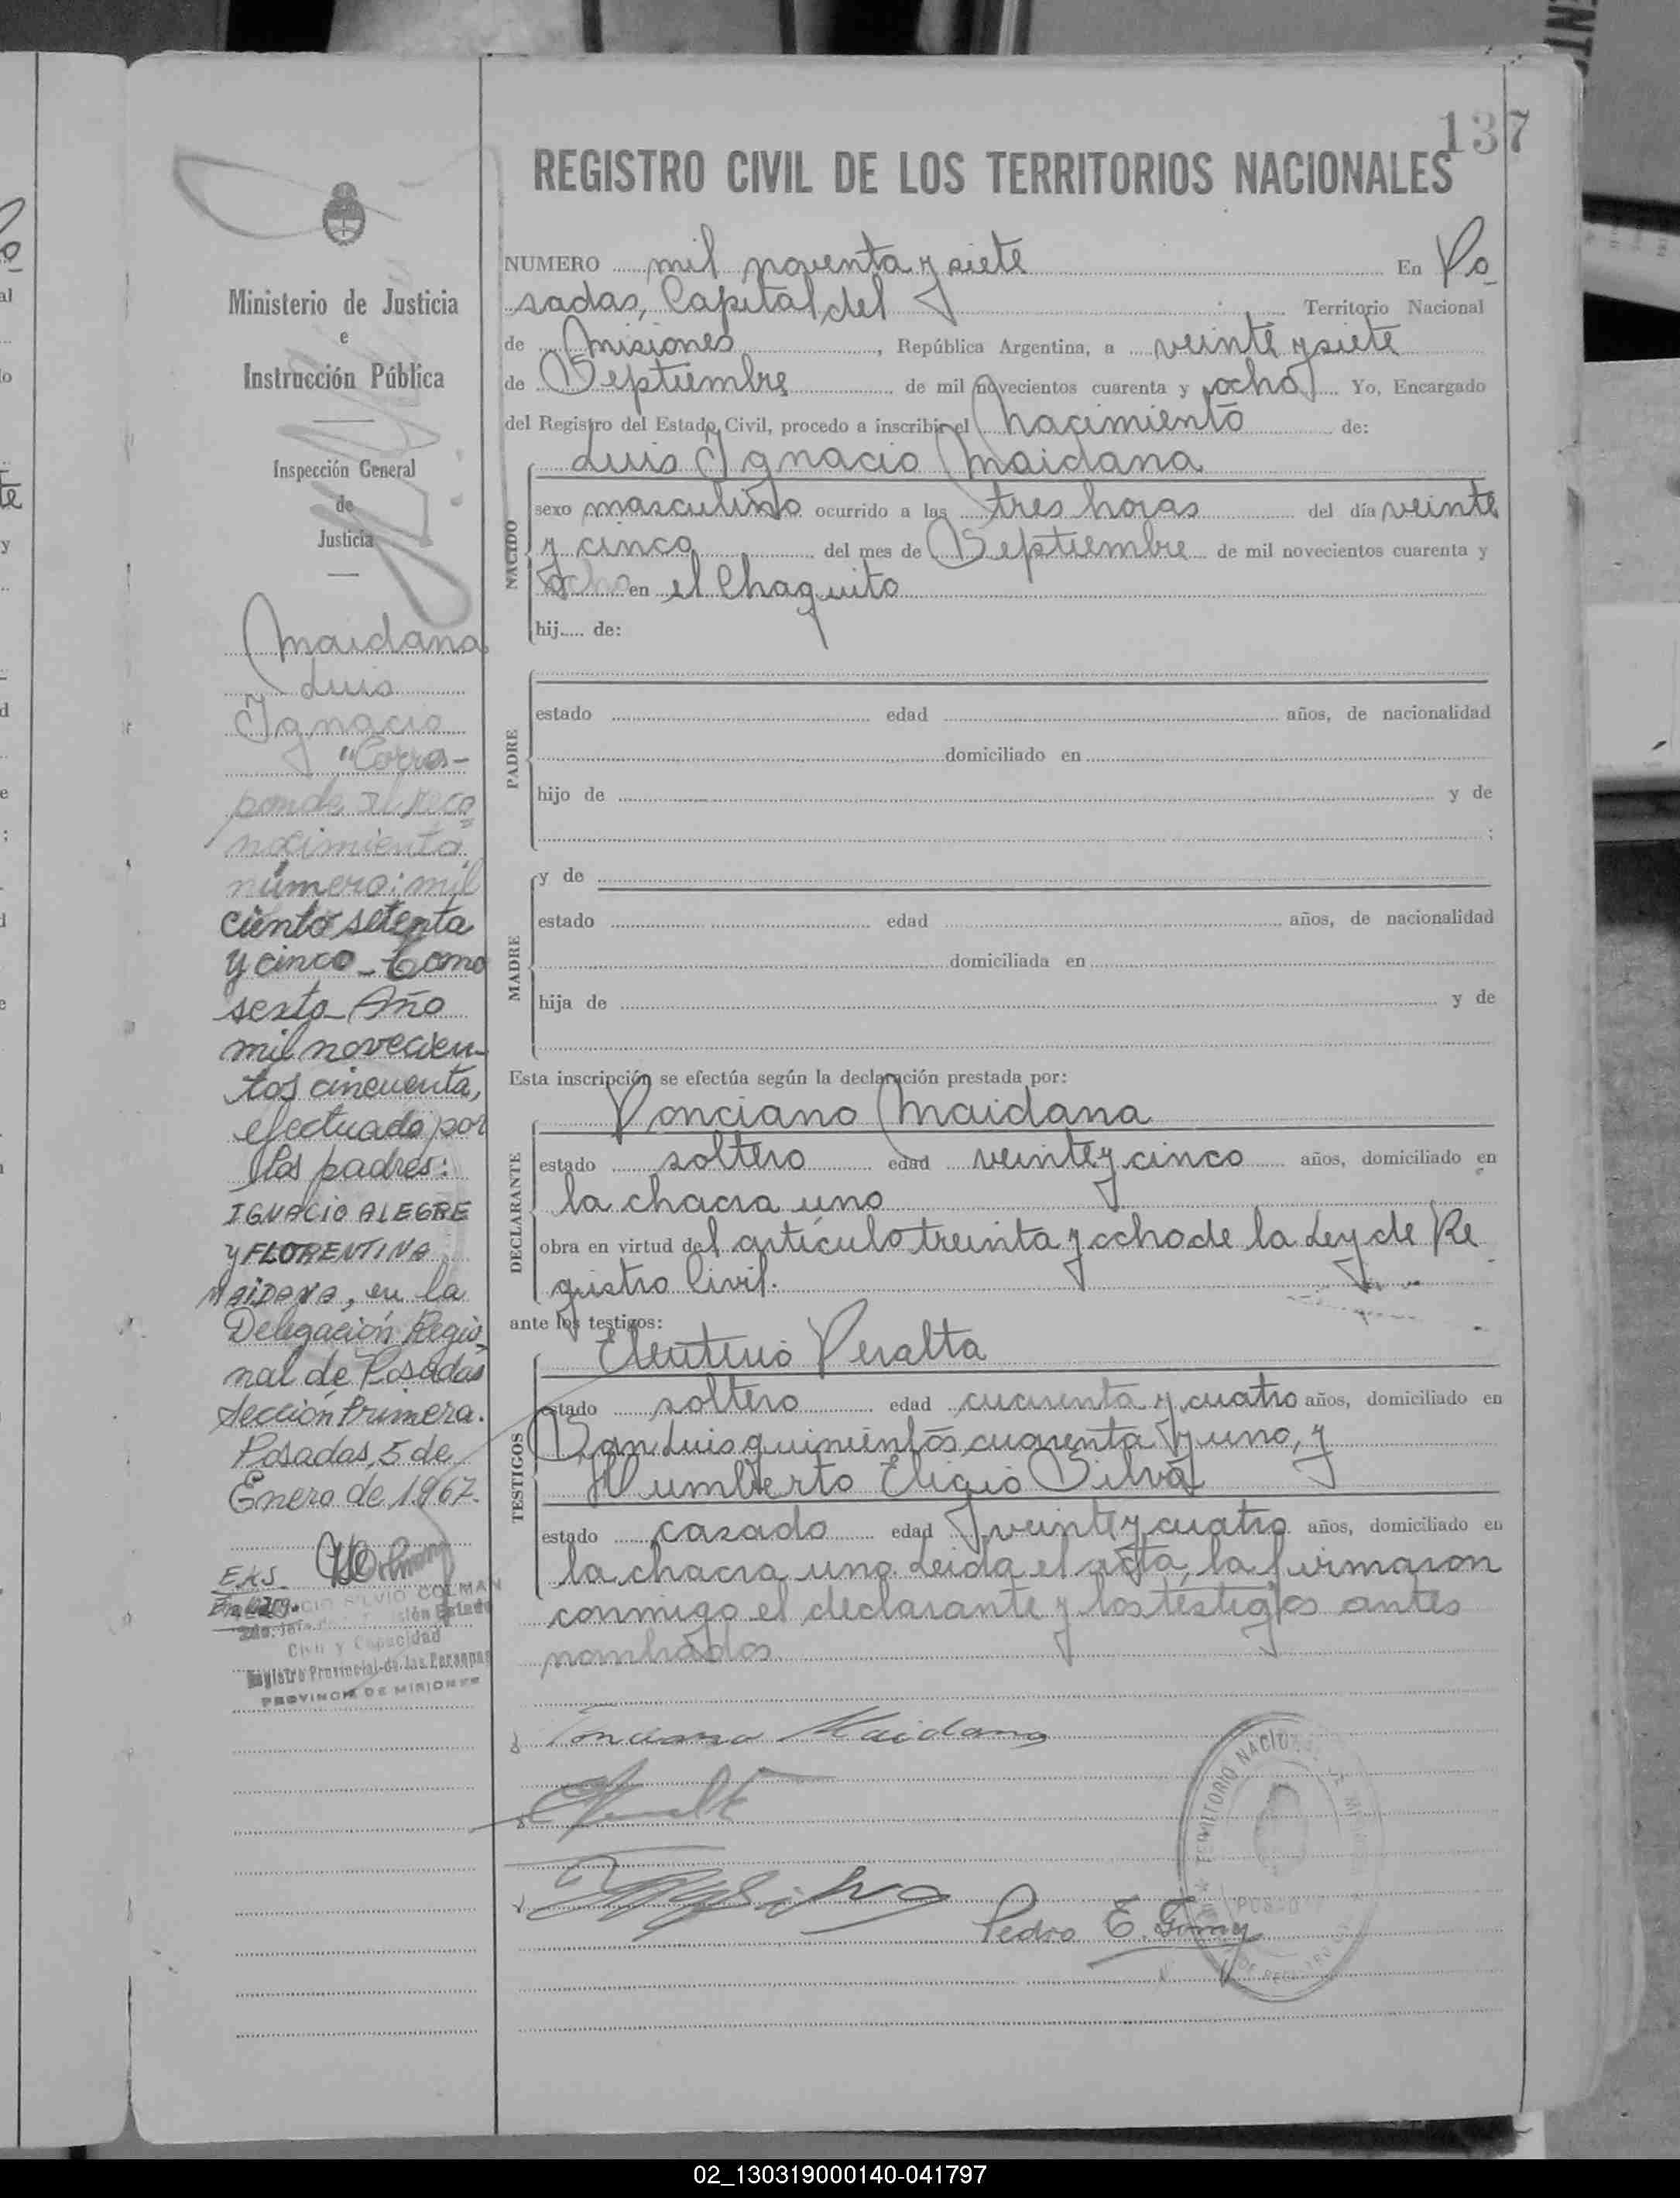 137
REGISTRO CIVIL DE LOS TERRITORIOS NACIONALES
NUMERO mil noventa y siete En Po-
sadas, Capital del Territorio Nacional
de Misiones, República Argentina, a veinte y siete
de Septiembre de mil novecientos cuarenta y ocho Yo, Encargado
del Registro del Estado Civil, procedo a inscribir el nacimiento de:
NACIDO
Luis Ignacio Maidana
sexo masculino ocurrido a las tres horas del día veinte
y cinco del mes de Septiembre de mil novecientos cuarenta y
ocho en el Chaquito
hij..... de:
PADRE
estado edad años, de nacionalidad
domiciliado en
hijo de y de
;
MADRE
y de
estado edad años, de nacionalidad
domiciliada en
hija de y de
Esta inscripción se efectúa según la declaración prestada por:
DECLARANTE
Ponciano Maidana
estado soltero edad veinte y cinco años, domiciliado en
la chacra uno
obra en virtud del artículo treinta y ocho de la Ley de Re
gistro Civil.
ante los testigos:
TESTIGOS
Eleuterio Peralta
estado soltero edad cuarenta y cuatro años, domiciliado en
San Luis quinientos cuarenta y uno, y
Humberto Eligio Silva
estado casado edad veinte y cuatro años, domiciliado en
la chacra uno. Leida el acta, la firmaron
conmigo el declarante y los testigos antes
nombrados
Ponciano Maidana
Pedro E.
TERRITORIO NACIONAL DE MISIONES
Ministerio de Justicia
e
Instrucción Pública
Inspección General
de
Justicia
Maidana
Luis
Ignacio
"Corres-
ponde al reco
nocimiento
número: mil
ciento setenta
y cinco - Tomo
sexto - Año
mil novecien-
tos cincuenta,
efectuado por
los padres:
IGNACIO ALEGRE
y FLORENTINA
MAIDANA, en la
Delegación Regio
nal de Posadas
Sección Primera.
Posadas, 5 de
Enero de 1967.
EAS
SILVIO COLMAN
Civil y Capacidad
Registro Provincial de las Personas
PROVINCIA DE MISIONES
02_130319000140-041797